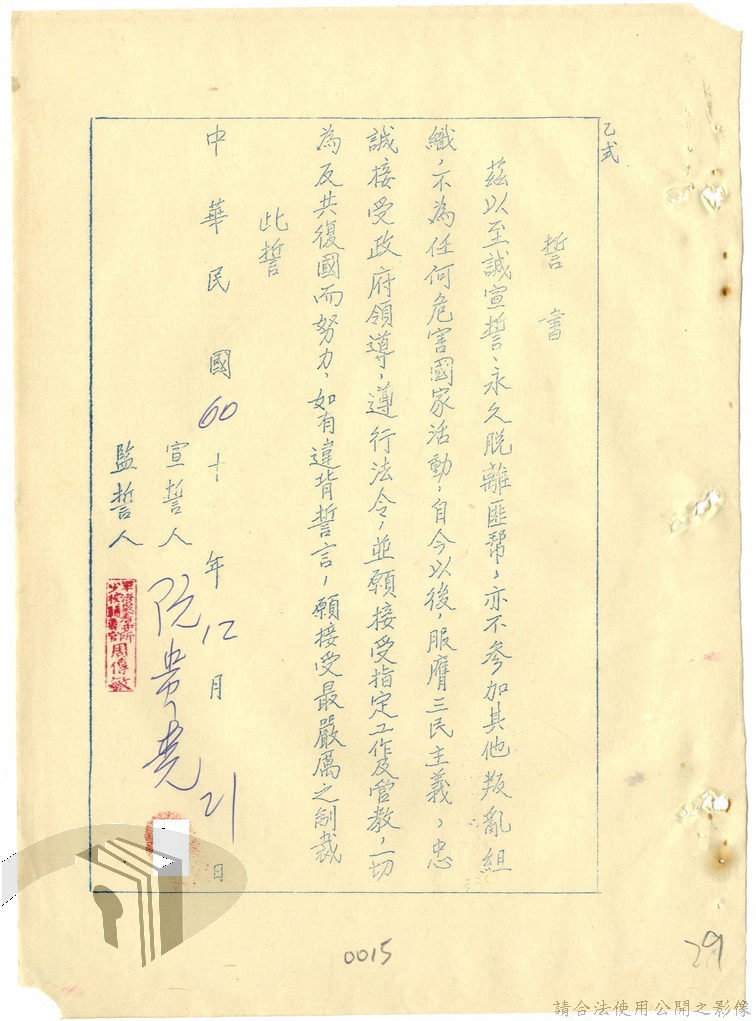 乙式
誓書
茲以至誠宣誓、永久脫離匪幫，亦不參加其他叛亂組
織，不為任何危害國家活動，自今以後，服膺三民主義，忠
誠接受政府領導，遵行法令，並願接受指定工作及管教，一切
為反共復國而努力，如有違背誓言，願接受最嚴厲之制裁
此誓
中華民國60十年12月21日
宣誓人 阮貴堯
監誓人
周傳敏
0015
29
請合法使用公開之影像